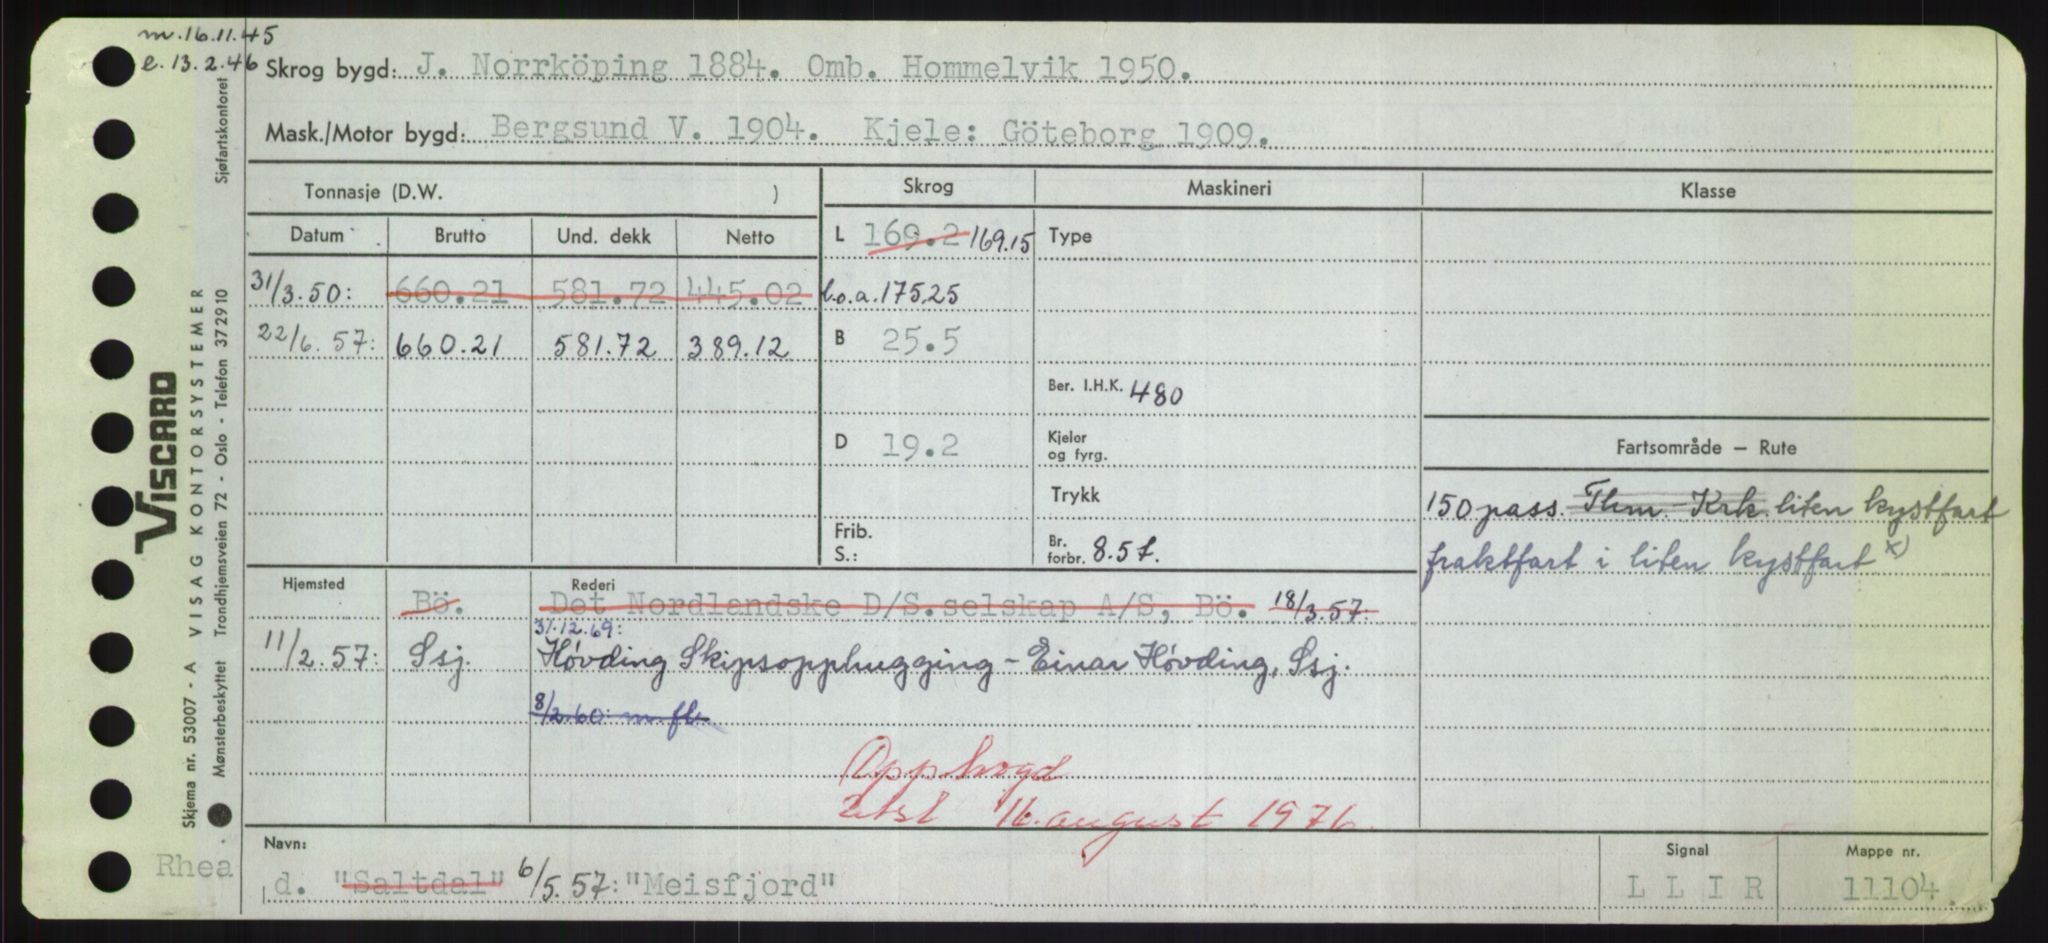 m. 16.11.45
e. 13.2.46
Skrog bygd: J. Norrköping 1884. Omb. Hommelvik 1950.
Mask./Motor bygd: Bergsund V. 1904. Kjele: Göteborg 1909.
Tonnasje (D.W. )
Skrog Maskineri Klasse
Datum Brutto Und. dekk Netto
L 169.2 169.15 Type
31/3.50: 660.21 581.72 445.02 l.o.a. 175,25
22/6.57: 660.21 581.72 389.12 B 25.5
Ber. I.H.K. 480
D 19.2 Kjeler og fyrg.
Fartsområde – Rute
Trykk
150 pass. Thm. Krk. liten kystfart
Frib. S.: Br. forbr. 8.5 t.
fraktfart i liten kystfart x)
Hjemsted Rederi
Bö. Det Nordlandske D/S.selskap A/S, Bö. 18/3.57.
31.12.69:
11/2.57: Ssj. Høvding Skipsopphugging – Einar Høvding, Ssj.
8/2.60: m. fl.
Opphogd
16. august 1976.
Navn: Signal Mappe nr.
Rhea
d. "Saltdal" 6/5.57: "Meisfjord" L L I R 11104.
Sjøfartskontoret
VISCARD
Skjema nr. 53007 - A VISAG KONTORSYSTEMER
Mønsterbeskyttet Trondhjemsveien 72 - Oslo - Telefon 372910